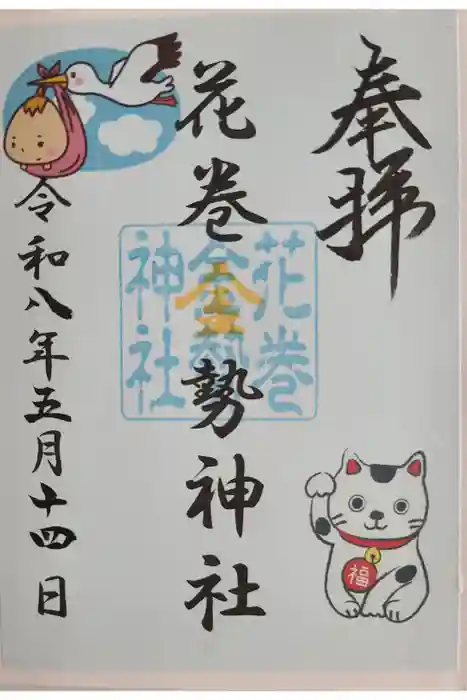 奉拝
花巻金勢神社
花巻
金勢
神社
令和八年五月十四日
福